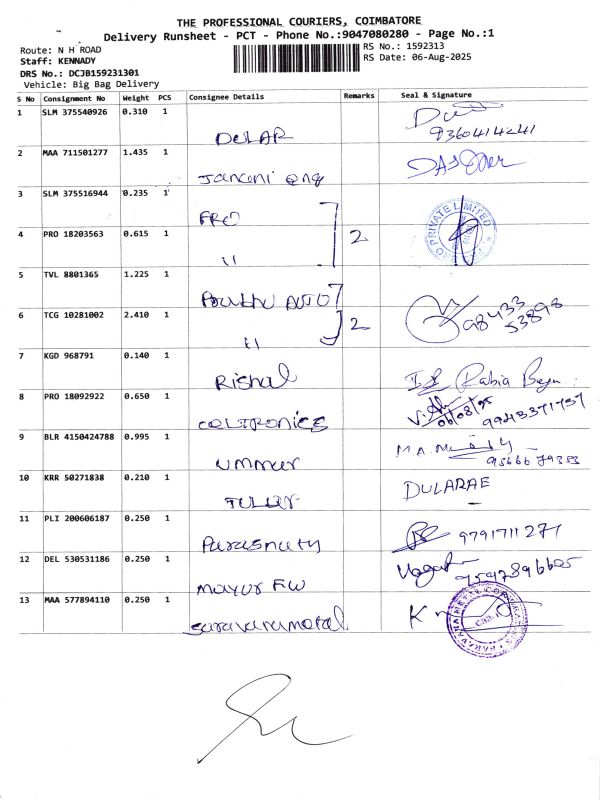 THE PROFESSIONAL COURIERS, COIMBATORE
Delivery Runsheet - PCT - Phone No.:9047080280 - Page No.:1
Route: N H ROAD
RS No.: 1592313
Staff: KENNADY
RS Date: 06-Aug-2025
DRS No.: DCJB159231301
Vehicle: Big Bag Delivery
S No Consignment No Weight PCS Consignee Details Remarks Seal & Signature
1 SLM 375540926 0.310 1
DULAR 9360414241
2 MAA 711501277 1.435 1
Janani eng
3 SLM 375516944 0.235 1
FRO PRIVATE LIMITED
4 PRO 18203563 0.615 1 2
11
5 TVL 8801365 1.225 1
AUTO
6 TCG 10281002 2.410 1 2 98433 53898
11
7 KGD 968791 0.140 1
Rishal Rabia
8 PRO 18092922 0.650 1 06/08/25 9943371757
CELTRONICS
9 BLR 4150424788 0.995 1
UMMUR
10 KRR 50271838 0.210 1 DULARAE
11 PLI 200606187 0.250 1 9791711271
12 DEL 530531186 0.250 1
mayur FW
13 MAA 577894110 0.250 1 K
saravanametal